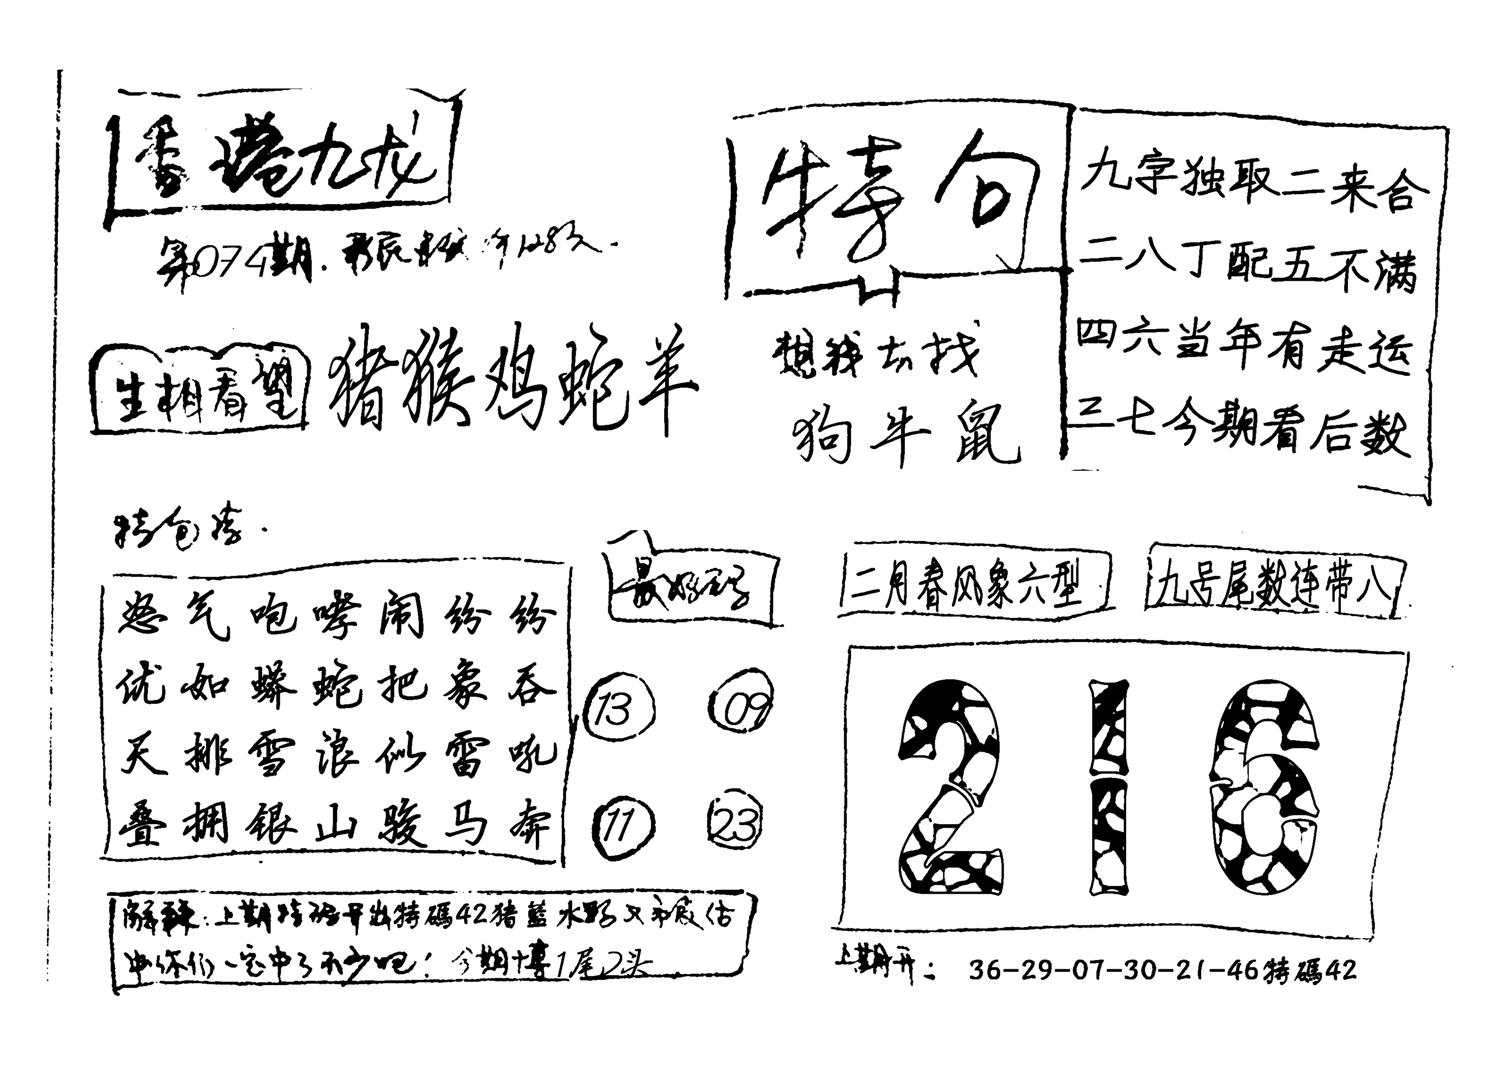 香港九龙
第074期.
生相看望
猪猴鸡蛇羊
特句
想我去找
狗牛鼠
九字独取二来合
二八丁配五不满
四六当年有走运
三七今期看后数
怒气咆哮闹纷纷
优如蟒蛇把象吞
天排雪浪似雷吼
叠拥银山骏马奔
最好码
13 09
11 23
二月春风象六型
九号尾数连带八
216
解释:上期特码开出特碼42猪藍水
中了不少吧!今期博1尾2头
上期开: 36-29-07-30-21-46特碼42